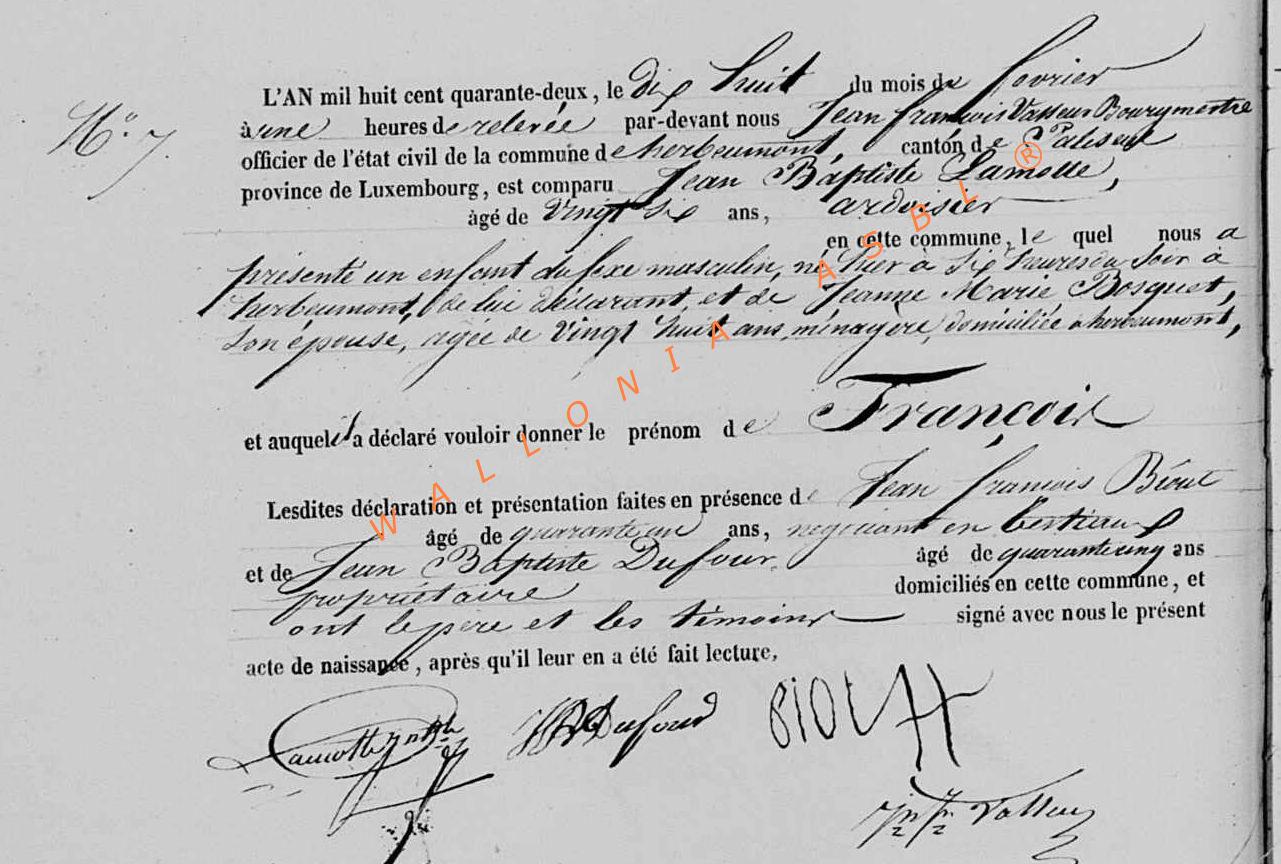 N.o 7.
L'AN mil huit cent quarante-deux, le dix huit du mois de fevrier
à une heures de relevée par-devant nous Jean françois Vasseur Bourgmestre
officier de l'état civil de la commune de herbeumont, canton de Paliseul
province de Luxembourg, est comparu Jean Baptiste Lamotte,
âgé de Vingt six ans, ardoisier
en cette commune, le quel nous a
présenté un enfant du sexe masculin, né hier à six heures du soir à
herbeumont, de lui déclarant et de Jeanne Marie Bosquet,
son épouse, agée de vingt huit ans, ménagère, domiciliée a herbeumont,
et auquel il a déclaré vouloir donner le prénom de François
Lesdites déclaration et présentation faites en présence de Jean francois
âgé de quarante un ans, négociant en bestiaux
et de Jean Baptiste Dufour. âgé de quarante cinq ans
propriétaire domiciliés en cette commune, et
ont le pere et les témoins signé avec nous le présent
acte de naissance, après qu'il leur en a été fait lecture,
Lamotte JB Dufour
Vasseur
WALLONIA ASBL ®